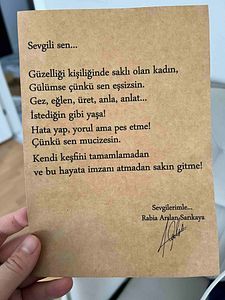 Sevgili sen...
Güzelliği kişiliğinde saklı olan kadın,
Gülümse çünkü sen eşsizsin.
Gez, eğlen, üret, anla, anlat...
İstediğin gibi yaşa!
Hata yap, yorul ama pes etme!
Çünkü sen mucizesin.
Kendi keşfini tamamlamadan
ve bu hayata imzanı atmadan sakın gitme!
Sevgilerimle...
Rabia Arslan Sarıkaya